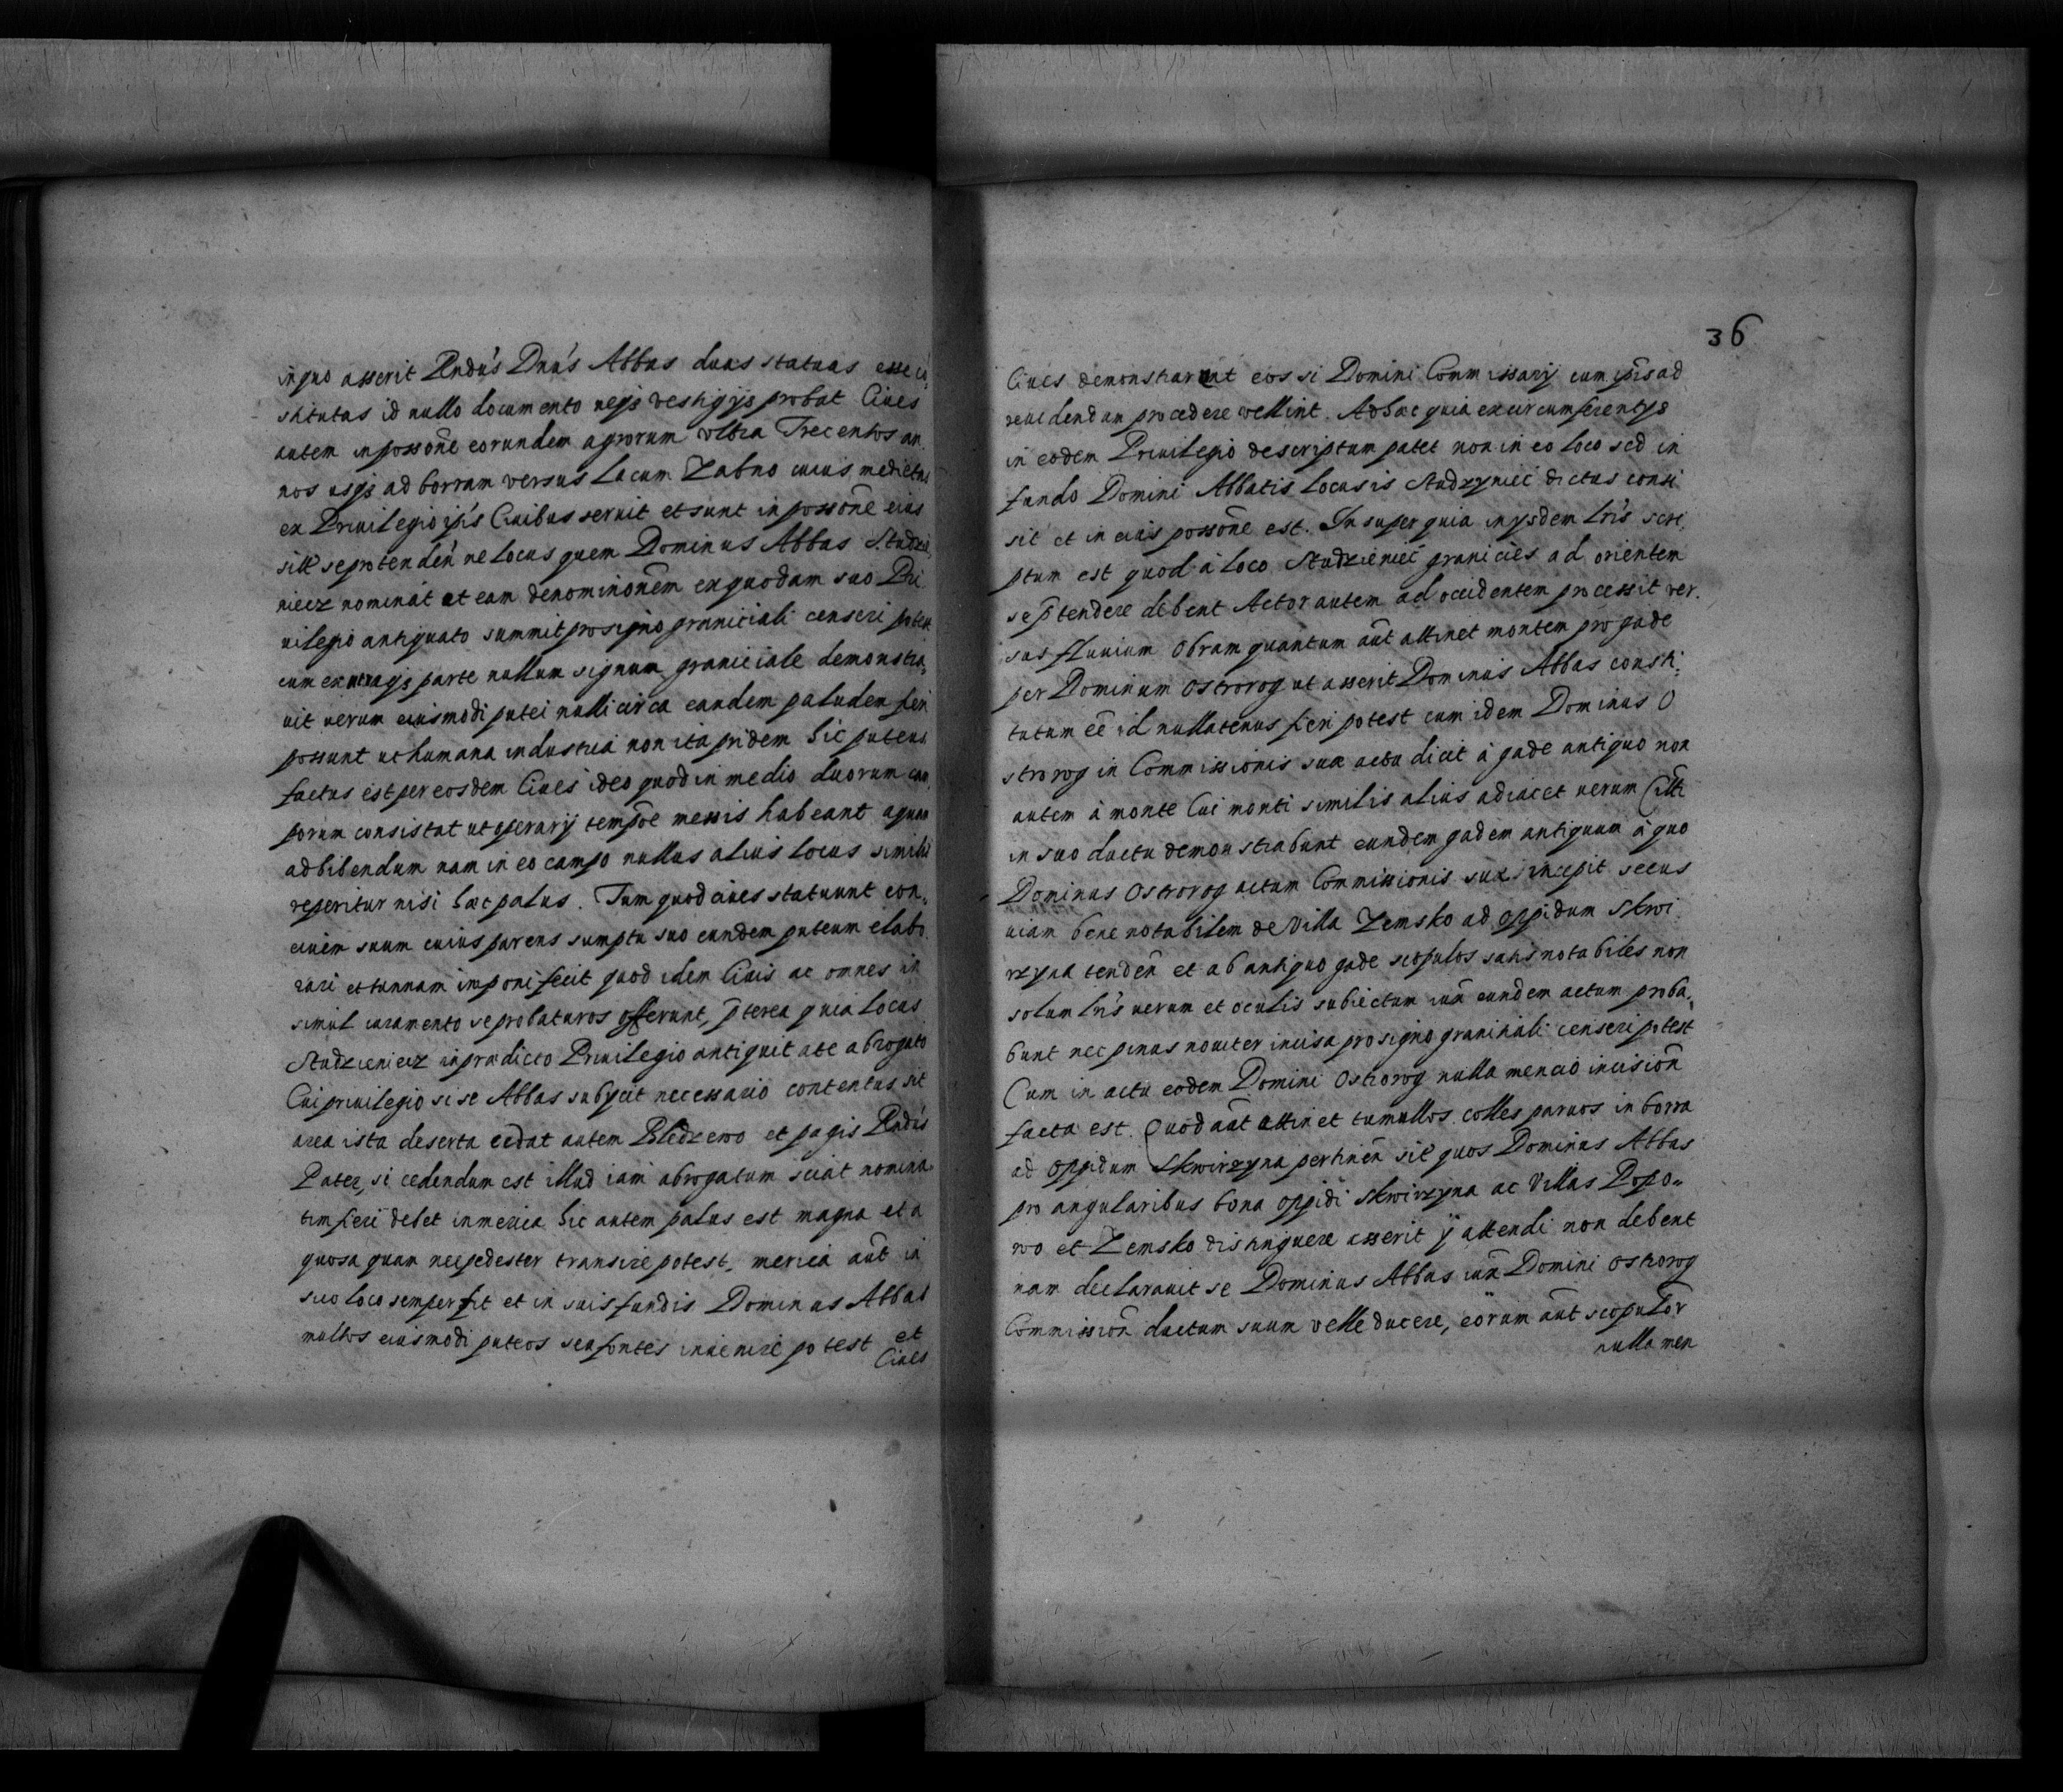 in quo asserit Rndūs Dnūs Abbas duas statuas esse
stitutas id nullo documento neqs vestigijs probat Ciues
autem in possone eorundem agrorum vltra Trecentos an
nos usqs ad borram versus Lacum Zabno cuius medietas
ex Priuilegio ipis Ciuibus seruit et sunt in possone eius
se protenden ne locus quem Dominus Abbas Studzie
niecz nominat et eam denominonem ex quodam suo Pri
uilegio antiquato summit pro signo graniciali censeri potest
cum ex utraqs parte nullum signum graniciale demonstra,
uit uerum eiusmodi putei nulli circa eandem paludem fieri
possunt ut humana industria non ita pridem hic puteus
factus est per eosdem Ciues ideo quod in medio duorum cam
porum consistat ut operarij tempore messis habeant aquam
ad bibendum nam in eo campo nullus alius locus similis
reperitur nisi haec palus. Tum quod ciues statuunt con,
ciuem suum cuius parens sumptu suo eundem puteum elabo
rari et tunnam imponi fecit quod idem Ciuis ac omnes in
simul iuramento se probaturos offerunt, pterea quia locus
Studzieniecz in praedicto Priuilegio antiquitate abrogato
Cui priuilegio si se Abbas subijcit necessario contentus sit
area ista deserta cedat autem Bledzewo et pagis Rndūs
Pater, si cedendum est illud iam abrogatum sciat nomina
tim fieri debet in merica hic autem palus est magna et a
quosa quam nec pedester transire potest, merica aut in
suo loco semper fit et in suis fundis Dominus Abbas
multos eiusmodi puteos seu fontes inuenire potest et
Ciues
36
Ciues demonstrarunt eos si Domini Commissarij cum ipis ad
reuidendum procedere vellint. Ad haec quia ex circumferentijs
in eodem Priuilegio descriptum patet non in eo loco sed in
fundo Domini Abbatis Locus is Studzyniec dictus consi
sit et in eius possone est. In super quia in ysdem lris scri,
ptum est quod à loco Studzieniec granicies ad orientem
se ptendere debent Actor autem ad occidentem processit ver.
sus fluuium Obram quantum aut attinet montem pro gade
per Dominum Ostrorog ut asserit Dominus Abbas consti,
tutum ee id nullatenus fieri potest cum idem Dominus O
strorog in Commissionis suae actu dicit à gade antiquo non
autem à monte Cui monti similis alius adiacet uerum Citti
in suo ductu demonstrabunt eundem gadem antiquum à quo
Dominus Ostrorog actum Commissionis suae incepit secus
uiam bene notabilem de Villa Zemsko ad oppidum Skwi
rzyna tenden et ab antiquo gade scopulos satis notabiles non
solum lris uerum et oculis subiectum iux eundem actum proba,
bunt nec pinus nouiter incisa pro signo graniciali censeri potest
Cum in actu eodem Domini Ostrorog nulla mencio incision
facta est. Quod aut attinet tumullos colles paruos in borra
ad oppidum Skwirzyna pertinen sit quos Dominus Abbas
pro angularibus bona oppidi Skwirzyna ac Villas Popo,,
wo et Zemsko distinguere asserit ij attendi non debent
nam declarauit se Dominus Abbas iux Domini Ostrorog
Commission ductum suum velle ducere, eorum aut scopulor
nulla men